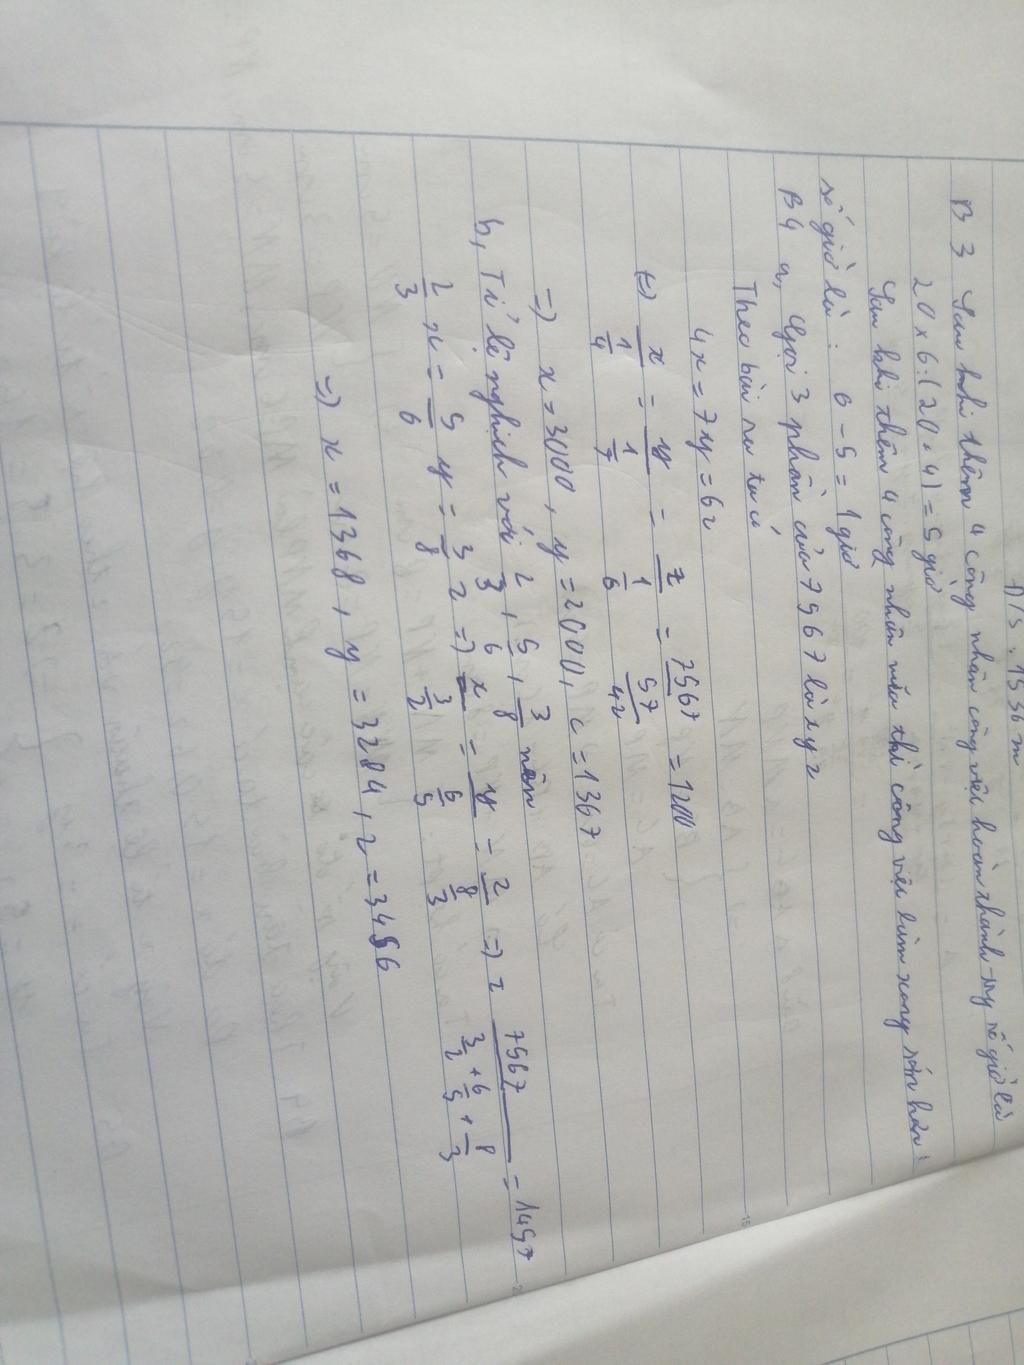 Đ/s : 1536 m
B 3 Sau khi thêm 4 công nhân công việc hoàn thành số giờ là
20 x 6 : (20 + 4) = 5 giờ
Sau khi thêm 4 công nhân nữa thì công việc làm xong sớm hơn
số giờ là : 6 - 5 = 1 giờ
B4 a, Gọi 3 phần của 7567 là x y z
Theo bài ra ta có
4x = 7y = 6z
(=) x/(1/4) = y/(1/7) = z/(1/6) = 7567/(57/42) = 1200
=) x = 3000, y = 2000, c = 1367
b, Tỉ lệ nghịch với 2/3, 5/6, 3/8 nên
2/3 x = 5/6 y = 3/8 z =) x/(3/2) = y/(6/5) = z/(8/3) =) z 7567/(3/2 + 6/5 + 8/3) = 1457
=) x = 1368, y = 3284, z = 3456